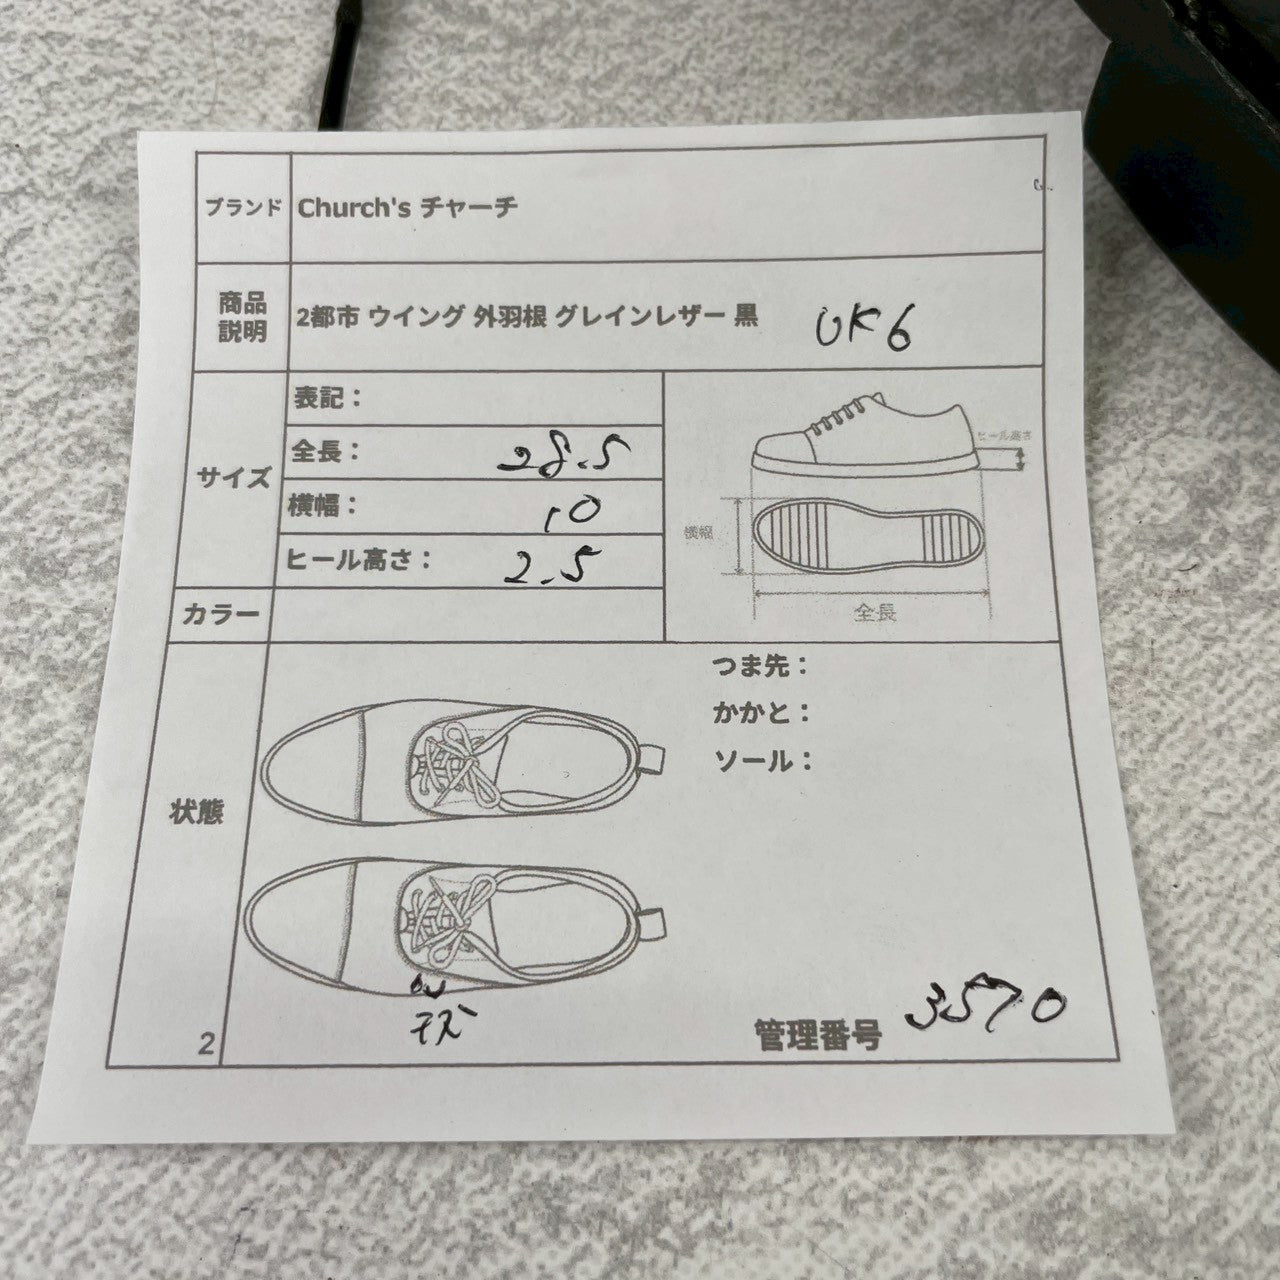 ブランド Church's チャーチ
商品説明 2都市 ウイング 外羽根 グレインレザー 黒 UK6
サイズ
表記：
全長： 28.5
横幅： 10
ヒール高さ： 2.5
ヒール高さ
横幅
全長
カラー
状態
つま先：
かかと：
ソール：
キズ
2
管理番号 3570